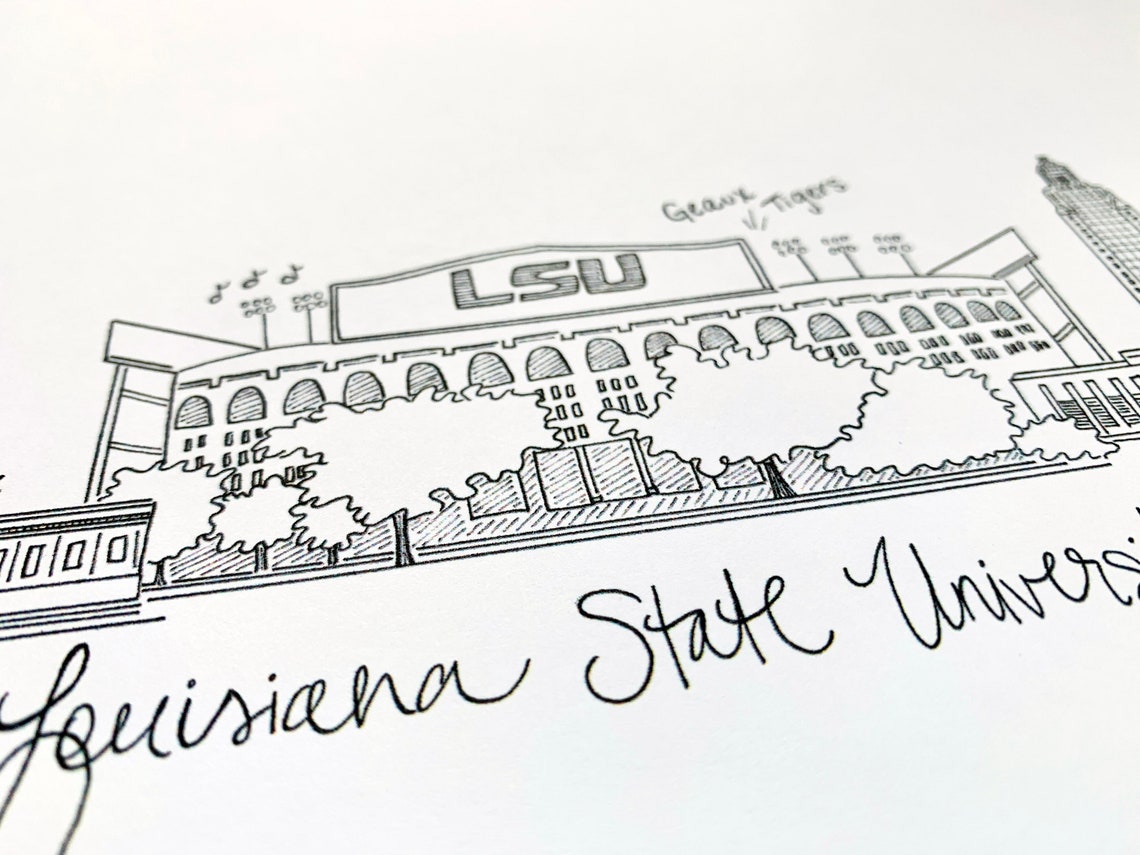 Geaux Tigers
LSU
Louisiana State Universi